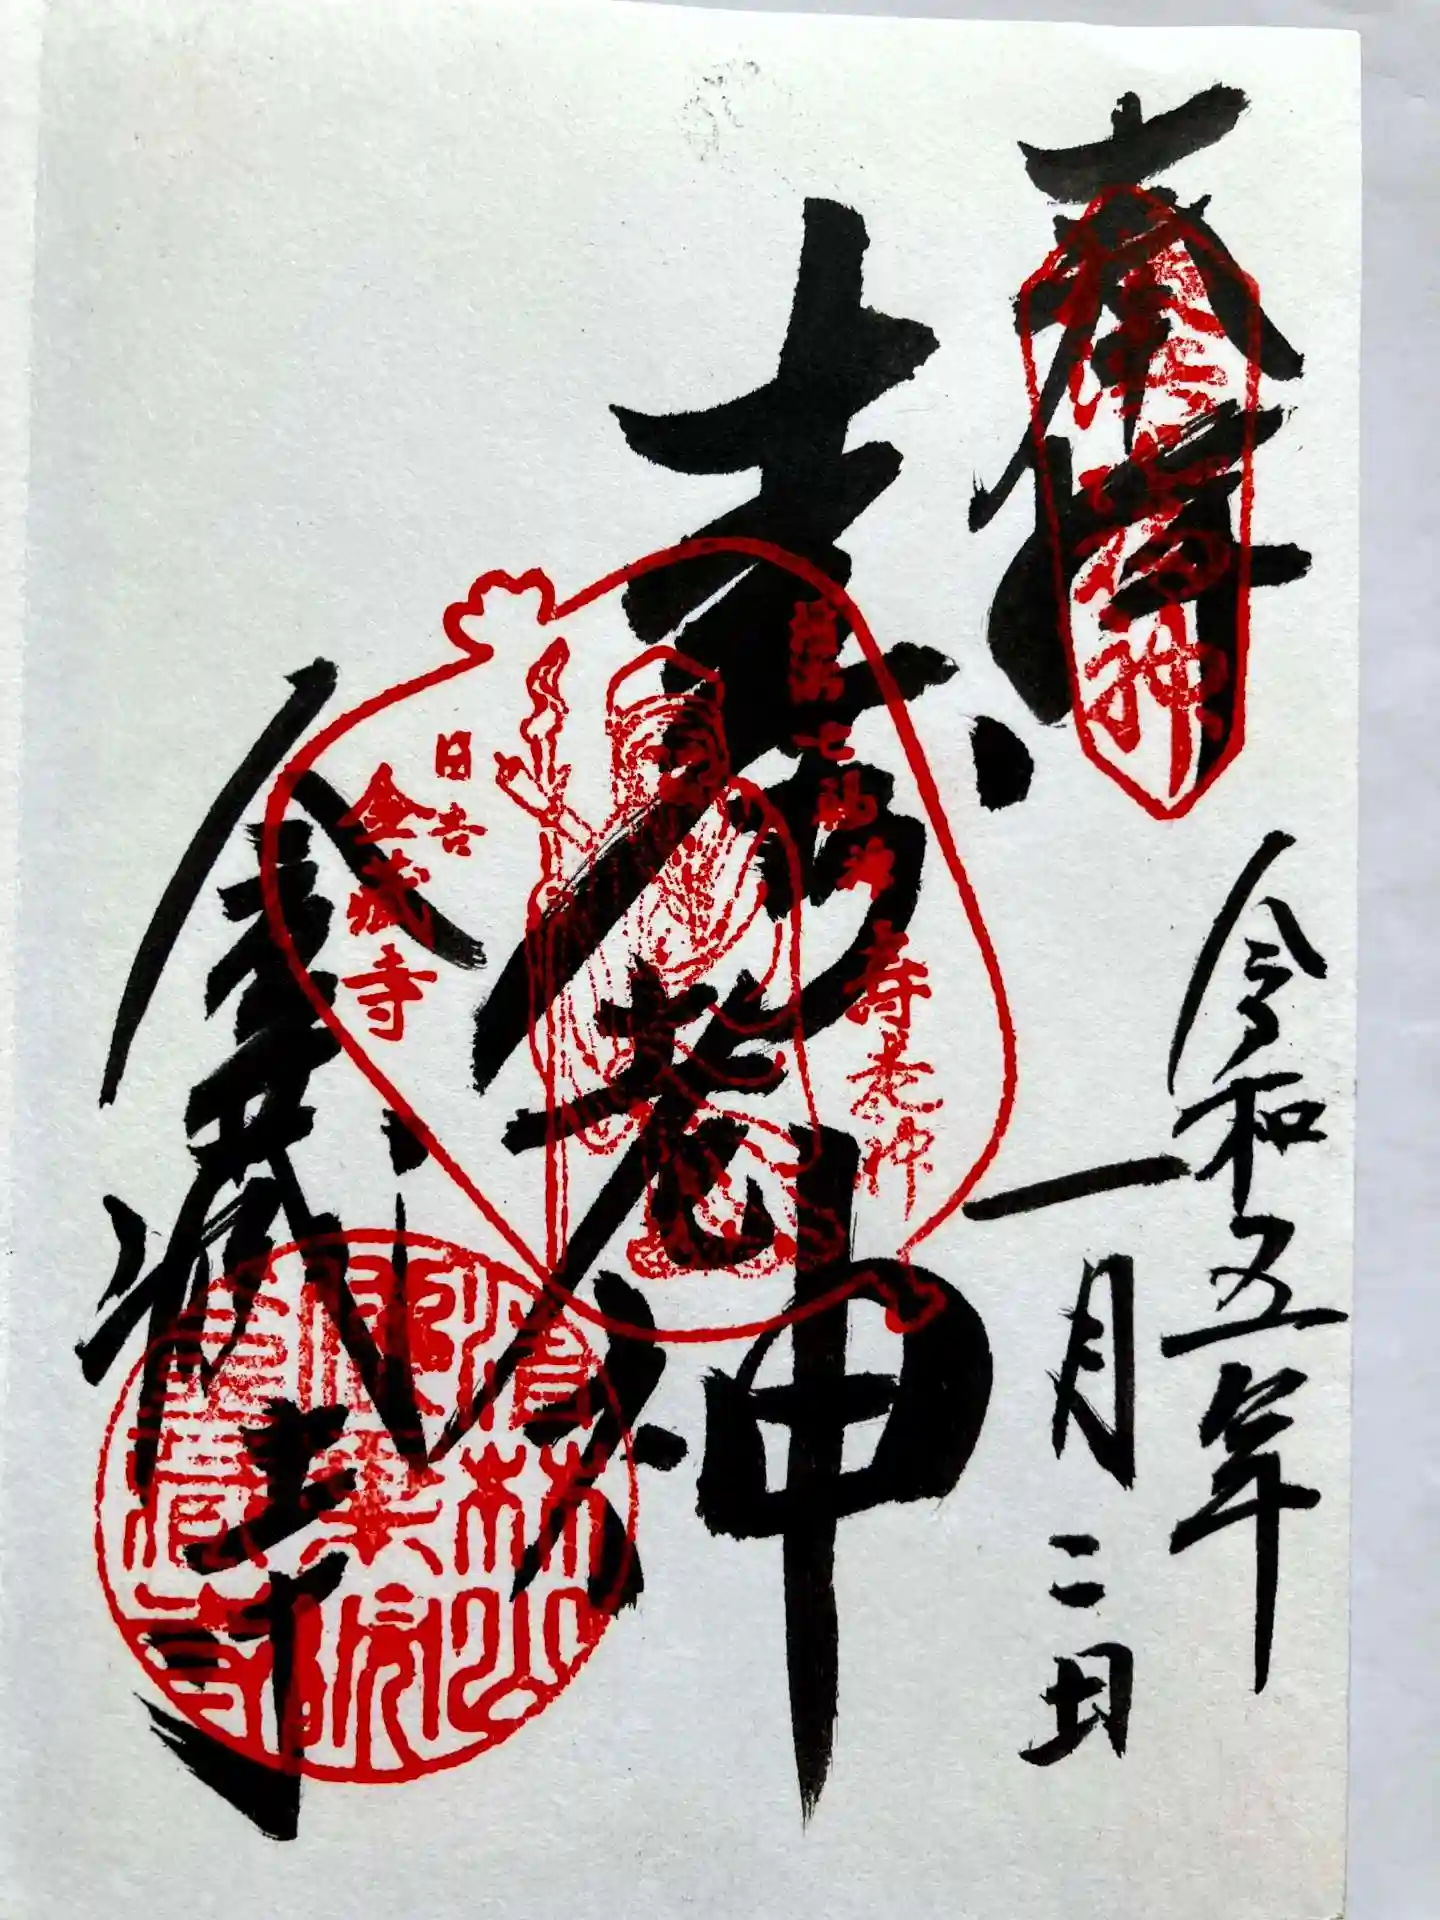 奉拝
令和五年
一月二日
寿老神
横濱七福神
寿老神
日吉
金蔵寺
金蔵寺